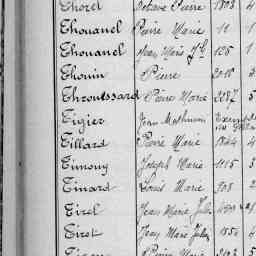 Thorel Octave Pierre 1808 4
Thouanel Pierre Marie 11 1
Thouanel Jean Marie 125 1
Thouin Pierre 2010 3
Throussard Pierre Marie 2287 5
Tigier Jean Mathurin
Tillard Pierre Marie 1844 4
Timony Joseph Marie 1115 3
Tinard Louis Marie 308 2
Tirel Jean Marie Julien
Tirot Jean Marie Julien 1854 4
Pierre Marie